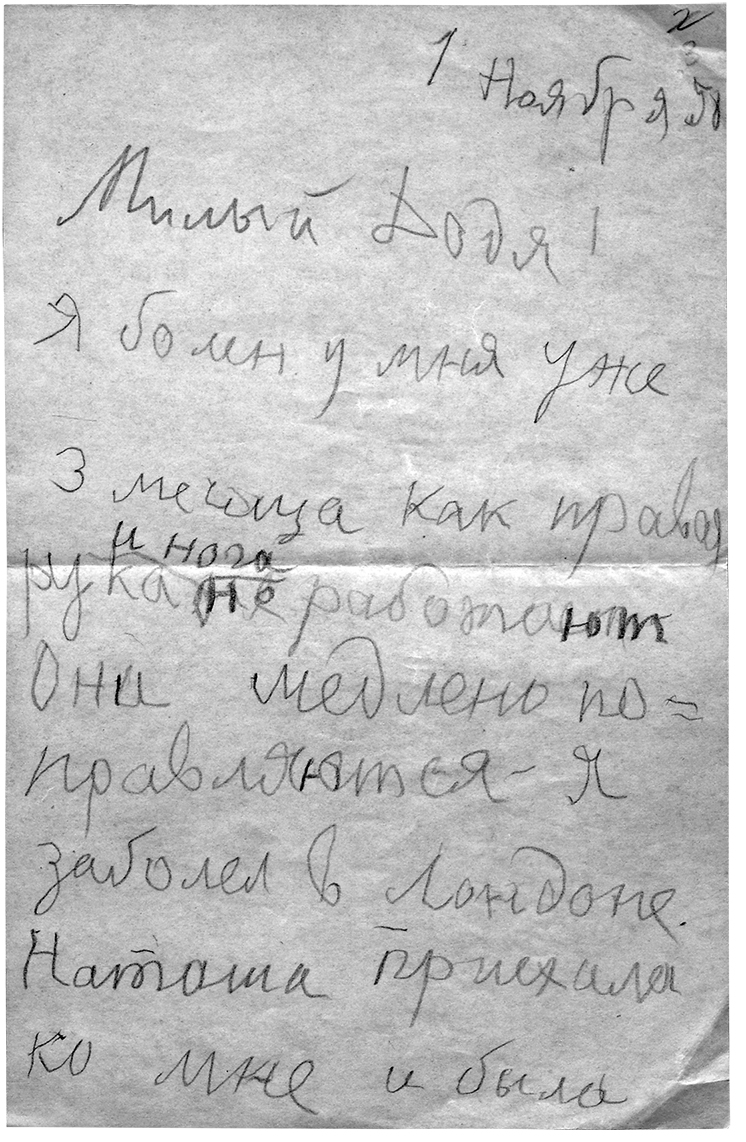 1 Ноября 58
Милый Додя!
Я болен у мня уже
3 месяца как правая
рука и нога не работают
Они медлено по=
правляются - Я
заболел в Лондоне.
Наташа приехала
ко мне и была